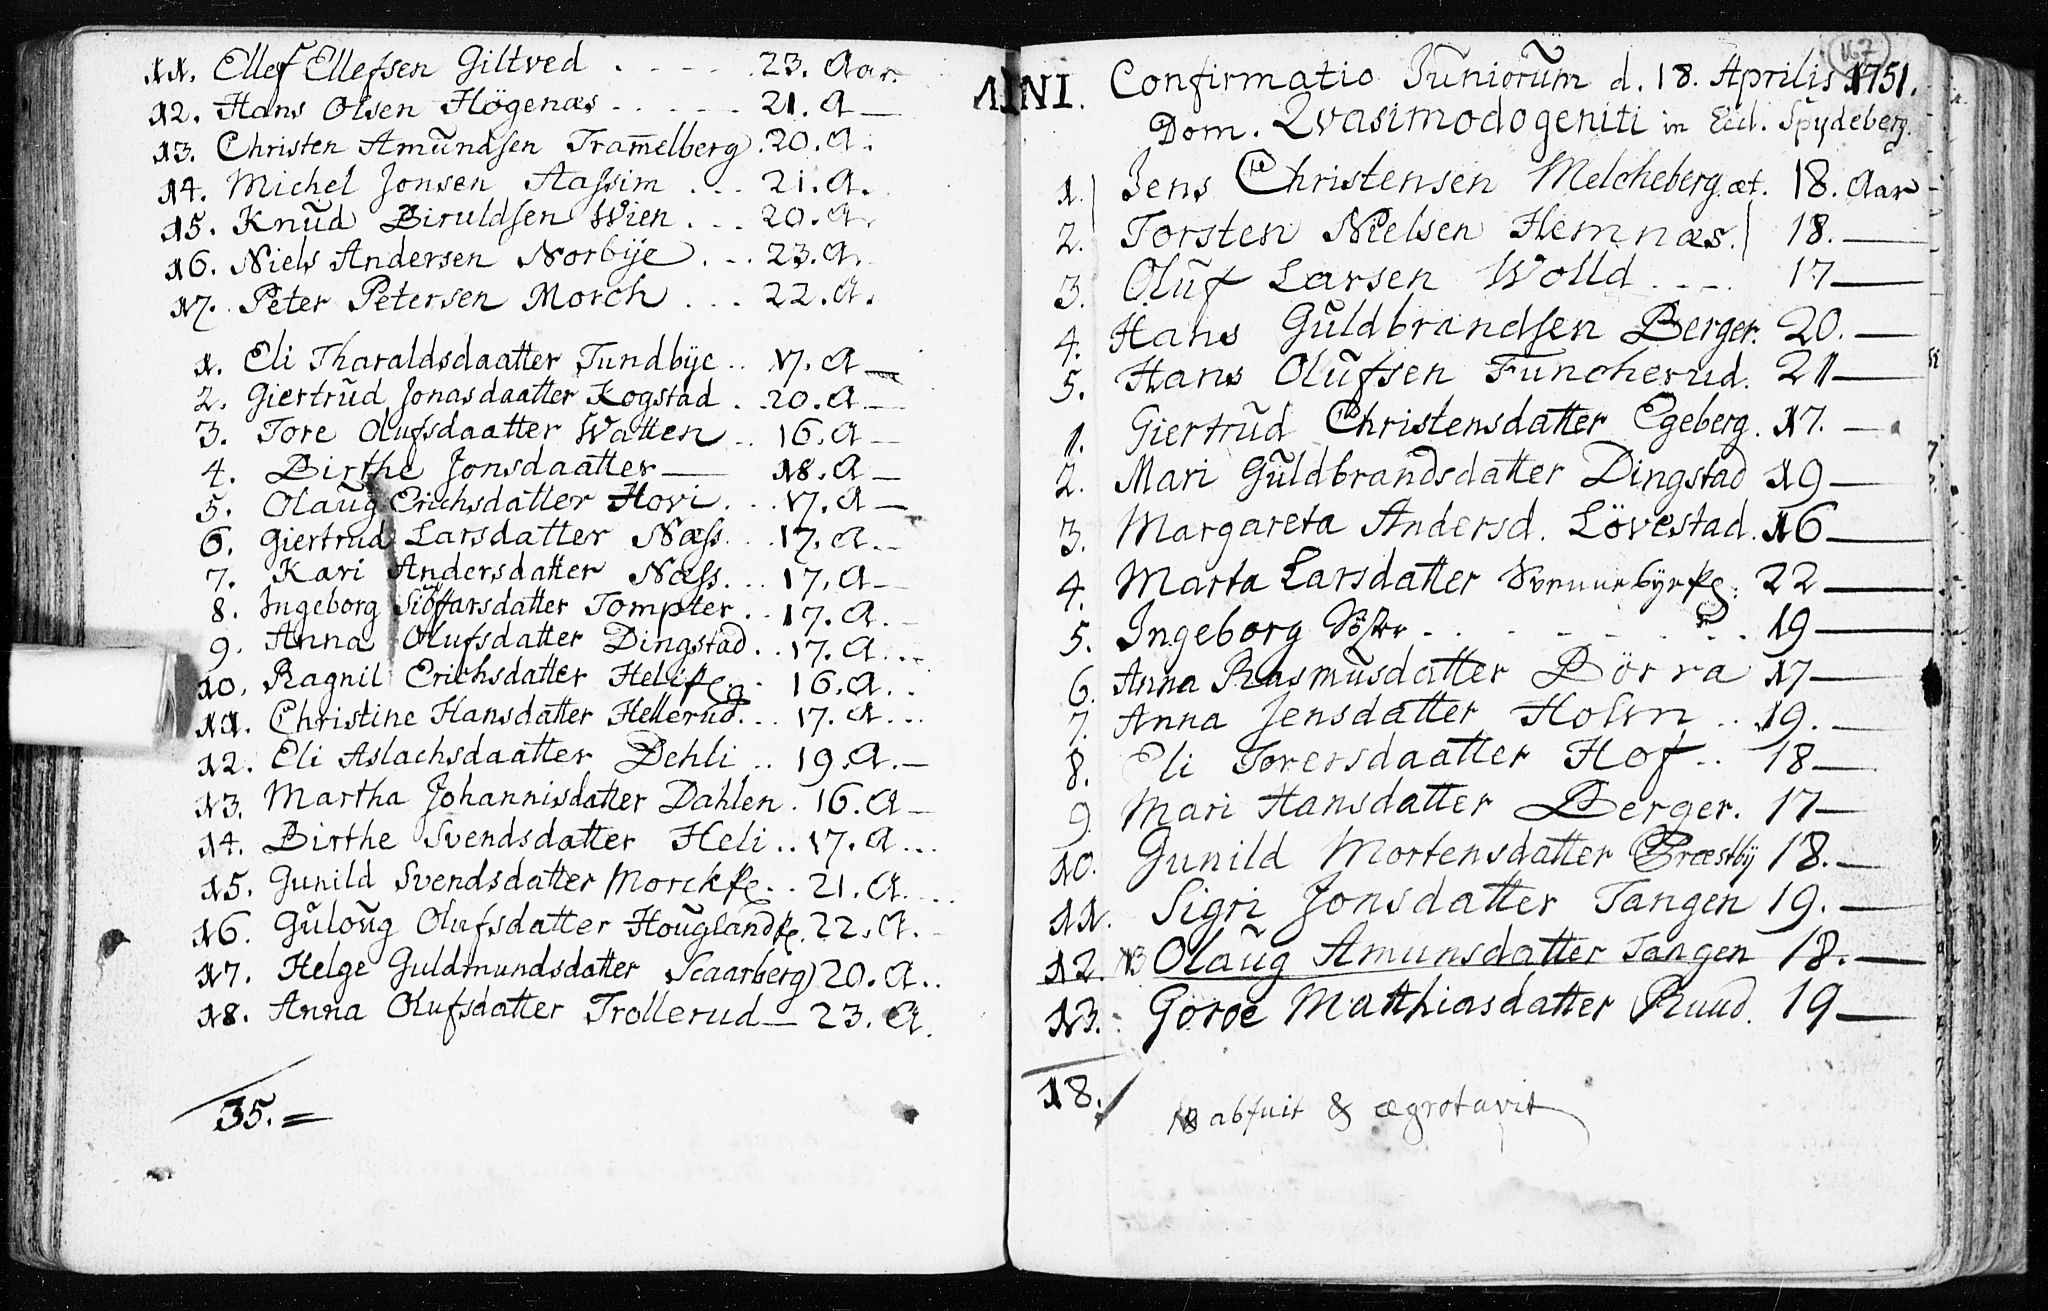 11. Ellef Ellefsen Giltved . - - - . 23. Aar.
12. Hans Olsen Högenæs . . - - - 21. A —
13. Christen Amundsen Tram̅elberg . 20. A.
14. Michel Jonsen Aassim . . . 21. A.
15. Knud Biruldsen Wien . . . 20. A.
16. Niels Andersen Norbÿe . - . 23. A.
17. Peter Petersen Morch . . . 22. A.
1. Eli Tharaldsdaatter Tundbÿe . . 17. A —
2. Giertrud Jonasdaatter Kogstad . . 20. A —
3. Tore Olufsdaatter Watten . . 16. A —
4. Birthe Jonsdaatter — 18. A —
5. Olaug Erichsdatter Hovi . . . 17. A —
6. Giertrud Larsdatter Næss . . 17. A . .
7. Kari Andersdatter Næss. . . 17. A —
8. Ingeborg Siöffarsdatter Tompter . . 17. A. —
9. Anna Olufsdatter Dingstad . . 17. A . . .
10. Ragnil Erichsdatter 16. A. .
11. Christine Hansdatter Hellerud . . . 17. A . . .
12. Eli Aslachsdaatter Dehli . . 19. A. —
13. Martha Johannisdatter Dahlen . 16. A —
14. Birthe Svendsdatter Heli . . 17. A . . .
15. Gunild Svendsdatter 21. A. . . .
16. Guloug Olufsdatter 22. A. -
17. Helge Guldmundsdatter Scaarberg) 20. A. .
18. Anna Olufsdatter Trollerud — 23. A.
35. =
167
MINI. Confirmatio Juniorum d. 18. Aprilis 1751.
Dom. Qvasimodogeniti in Eccl. Spÿdeberg.
1. Jens Christensen Melcheberg. æt. 18. Aar
2. Torsten Nielsen Hemnæs. 18. —
3. Oluf Larsen Wolld . - - . 17 —
4. Hans Guldbrandsen Berger. 20. —
5. Hans Olufsen Funcherud. 21 —
1. Giertrud Christensdatter Egeberg. 17. —
2. Mari Guldbrandsdatter Dingstad 19 —
3. Margareta Andersd. Lövestad. 16 —
4. Marta Larsdatter 22 —
5. Ingeborg . . - - - - . . 19 —
6. Anna Rasmusdatter Börra 17 —
7. Anna Jensdatter Holm . . 19. —
8. Eli Torersdaatter Hof . . 18 —
9. Mari Hansdatter Berger. 17 —
10. Gunild Mortensdatter Præstbÿ 18. —
11. Sigri Jonsdatter Tangen 19. —
12. NB Olaug Amunsdatter Tangen 18. —
13. Goroe Matthiasdatter Ruud. 19 —
18.
NB abfuit & ægrotavit